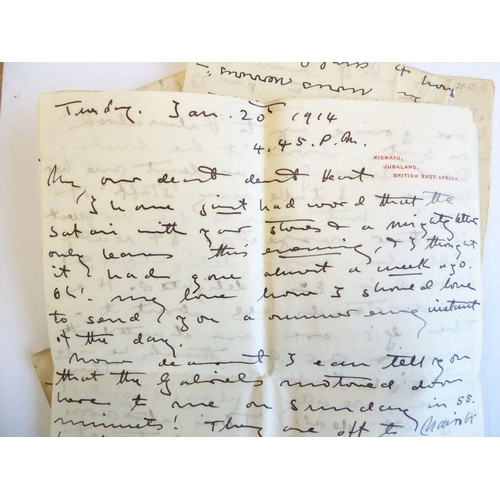 Tuesday. Jan. 20th 1914
4.45. P.M.
KISMAYU,
JUBALAND,
BRITISH EAST AFRICA.
My own dearest dearest Heart
I have just had word that the
Safari with your stores & a mighty letter
only leaves this evening & I thought
it had gone almost a week ago.
Oh! my love how I should love
to send you a number every instant
of the day.
Now dearest I can tell you
that the Gabriels motored down
here to me on Sunday in 55.
minutes! They are off to Nairobi